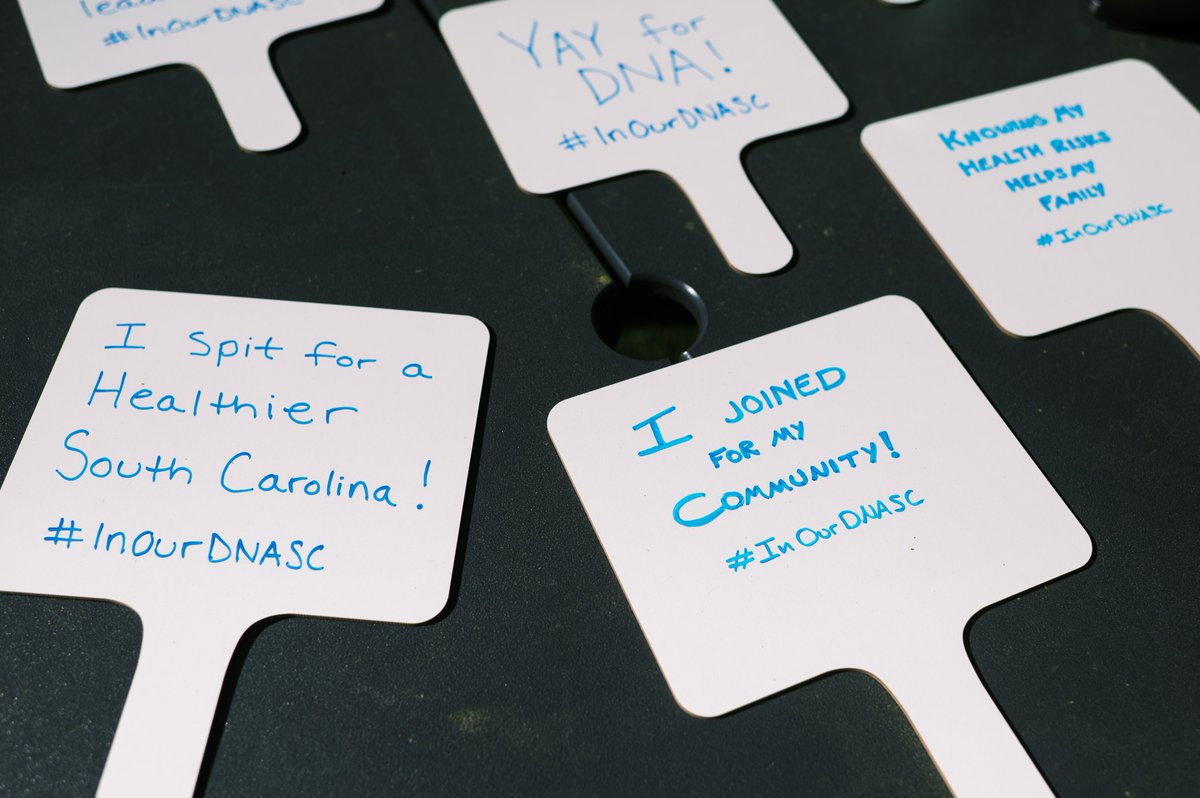 lead
#InOurDNASC
YAY for
DNA!
#InOurDNASC
KNOWING MY
HEALTH RISKS
HELPS MY
FAMILY
#InOurDNASC
I spit for a
Healthier
South Carolina!
#InOurDNASC
I JOINED
FOR MY
COMMUNITY!
#InOurDNASC